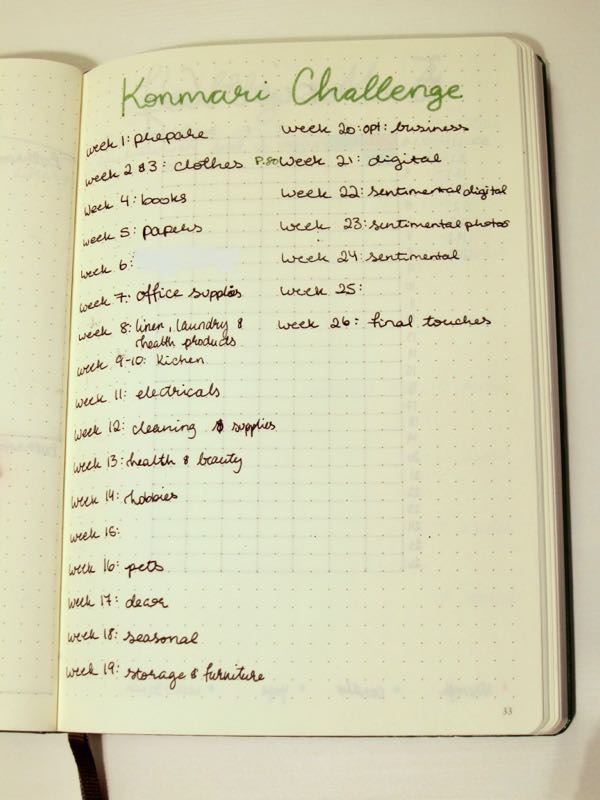 Konmari Challenge
week 1: prepare
week 2 & 3: clothes P.80
week 4: books
week 5: papers
week 6:
week 7: office supplies
week 8: linen, laundry &
health products
week 9-10: Kichen
week 11: electricals
week 12: cleaning & supplies
week 13: health & beauty
week 14: hobbies
week 15:
week 16: pets
week 17: decor
week 18: seasonal
week 19: storage & furniture
week 20: opt: business
week 21: digital
week 22: sentimental digital
week 23: sentimental photos
week 24: sentimental
week 25:
week 26: final touches
33